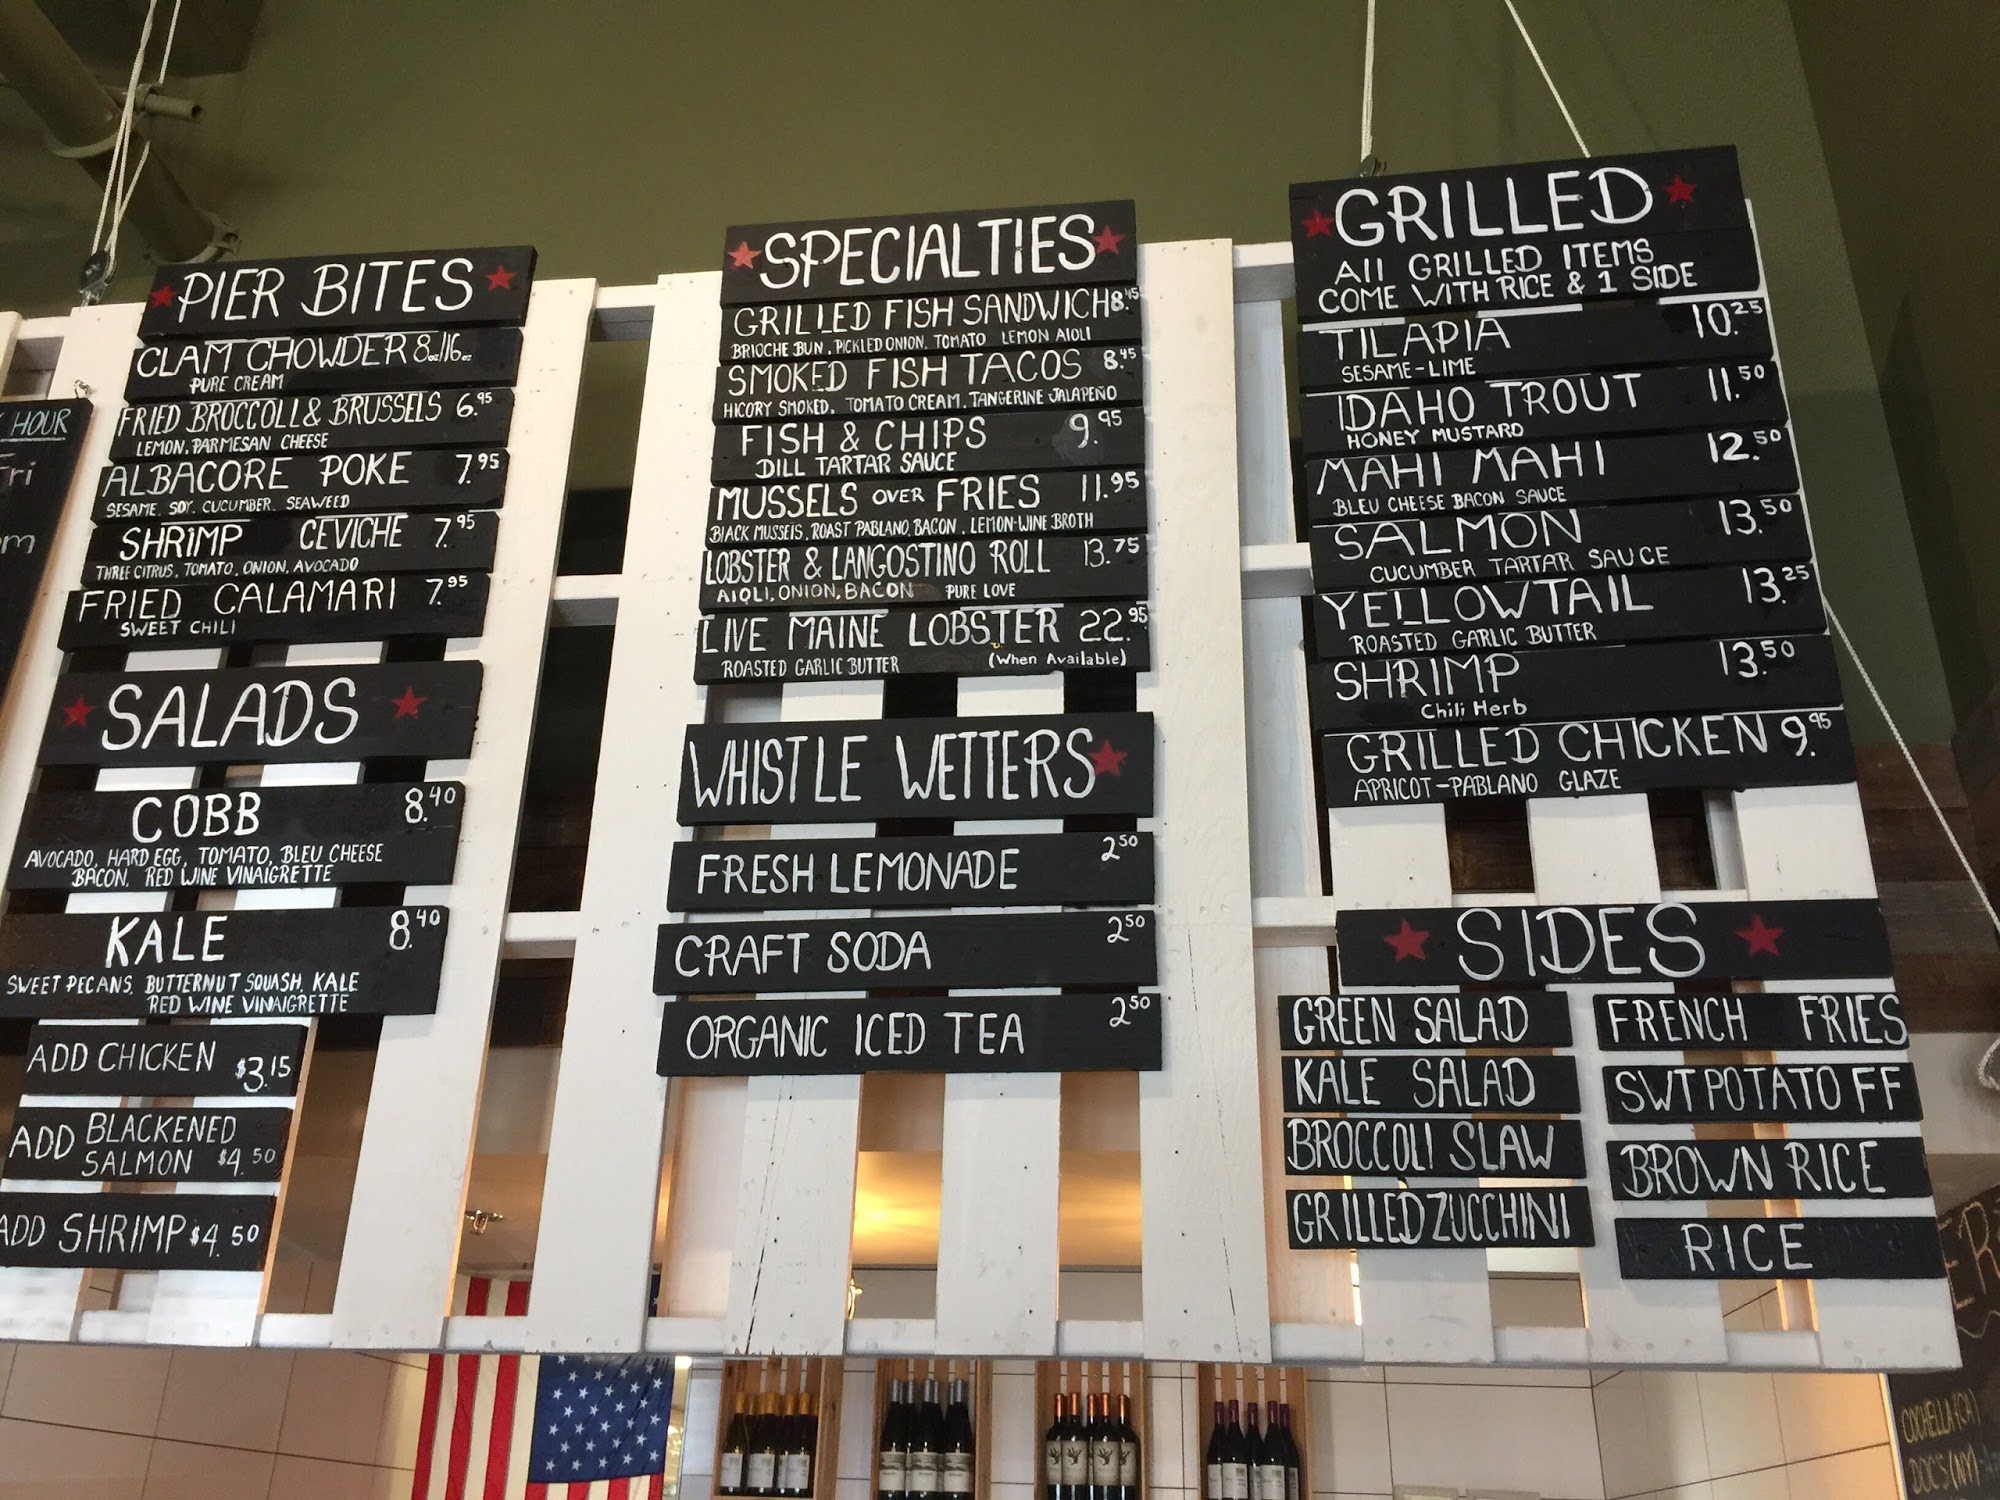 PIER BITES
CLAM CHOWDER 8oz/16oz
PURE CREAM
FRIED BROCCOLI & BRUSSELS 6.95
LEMON, PARMESAN CHEESE
ALBACORE POKE 7.95
SESAME, SOY, CUCUMBER, SEAWEED
SHRIMP CEVICHE 7.95
THREE CITRUS, TOMATO, ONION, AVOCADO
FRIED CALAMARI 7.95
SWEET CHILI
SALADS
COBB 8.40
AVOCADO, HARD EGG, TOMATO, BLEU CHEESE
BACON, RED WINE VINAIGRETTE
KALE 8.40
SWEET PECANS, BUTTERNUT SQUASH, KALE
RED WINE VINAIGRETTE
ADD CHICKEN $3.15
ADD BLACKENED
SALMON $4.50
ADD SHRIMP $4.50
SPECIALTIES
GRILLED FISH SANDWICH 8.45
BRIOCHE BUN, PICKLED ONION, TOMATO LEMON AIOLI
SMOKED FISH TACOS 8.45
HICORY SMOKED, TOMATO CREAM, TANGERINE JALAPEÑO
FISH & CHIPS 9.95
DILL TARTAR SAUCE
MUSSELS OVER FRIES 11.95
BLACK MUSSELS, ROAST PABLANO, BACON, LEMON-WINE BROTH
LOBSTER & LANGOSTINO ROLL 13.75
AIOLI, ONION, BACON PURE LOVE
LIVE MAINE LOBSTER 22.95
ROASTED GARLIC BUTTER (When Available)
WHISTLE WETTERS
FRESH LEMONADE 2.50
CRAFT SODA 2.50
ORGANIC ICED TEA 2.50
GRILLED
All GRILLED ITEMS
COME WITH RICE & 1 SIDE
TILAPIA 10.25
SESAME-LIME
IDAHO TROUT 11.50
HONEY MUSTARD
MAHI MAHI 12.50
BLEU CHEESE BACON SAUCE
SALMON 13.50
CUCUMBER TARTAR SAUCE
YELLOWTAIL 13.25
ROASTED GARLIC BUTTER
SHRIMP 13.50
Chili Herb
GRILLED CHICKEN 9.95
APRICOT-PABLANO GLAZE
SIDES
GREEN SALAD
KALE SALAD
BROCCOLI SLAW
GRILLED ZUCCHINI
FRENCH FRIES
SWT POTATO FF
BROWN RICE
RICE
HOUR
COCHELLA (CA)
DOC'S (NY)